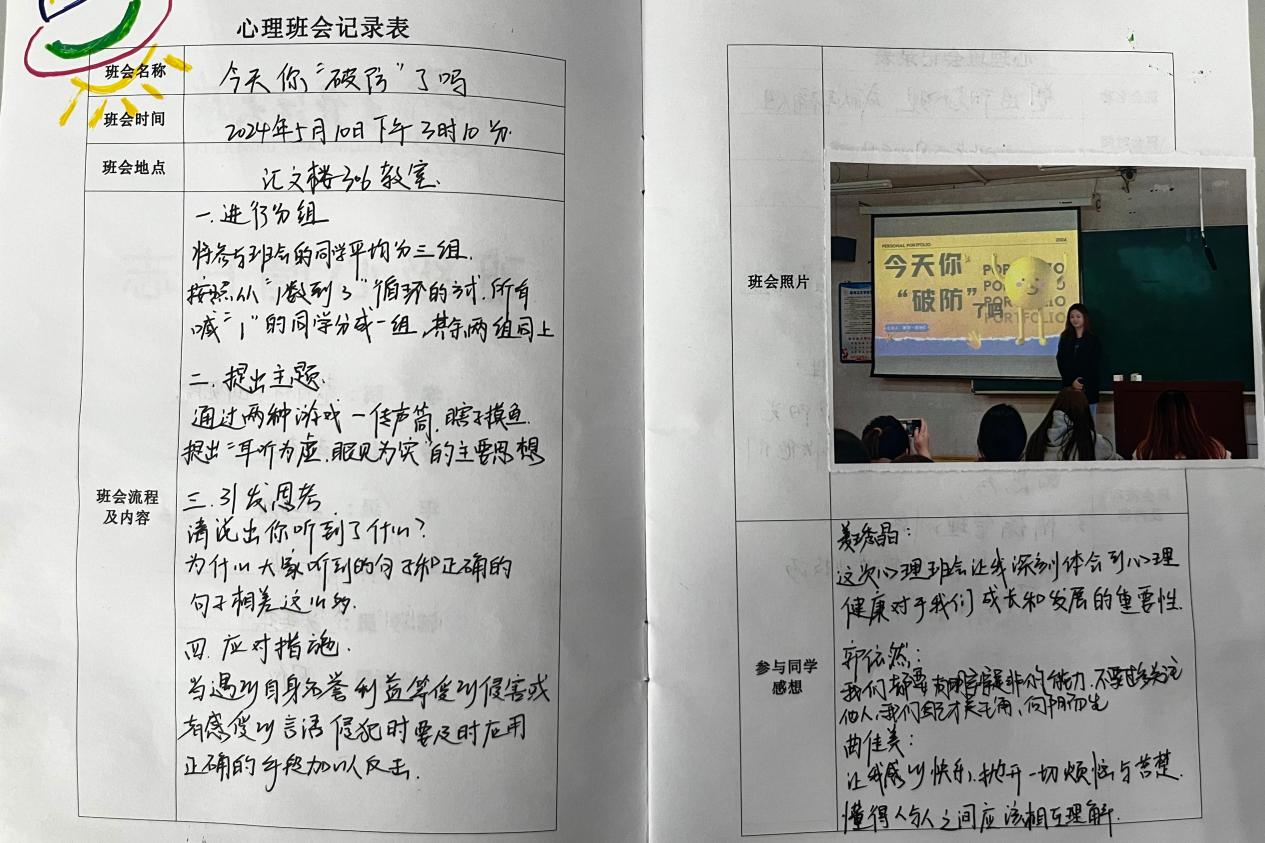 心理班会记录表
班会名称
今天你“破防”了吗
班会时间
2024年5月10日下午3时10分.
班会地点
汇文楼306教室.
班会流程
及内容
一.进行分组
将参与班会的同学平均为三组.
按照从“1数到3”循环的方式.所有
喊“1”的同学分成一组,其余两组同上
二.提出主题.
通过两种游戏—传声筒,瞎子摸鱼.
提出“耳听为虚,眼见为实”的主要思想
三.引发思考
请说出你听到了什么?
为什么大家听到的句子和正确的
句子相差这么多.
四.应对措施.
当遇到自身名誉利益等受到侵害或
者感受到言语侵犯时要及时应用
正确的手段加以反击.
班会照片
PERSONAL PORTFOLIO
2024
今天你
“破防”
了吗
PORTFOLIO
PORTFOLIO
PORTFOLIO
PORTFOLIO
参与同学
感想
晶:
这次心理班会让我深刻体会到心理
健康对于我们成长和发展的重要性.
郭依然:
我们都要有明辨是非的能力.不要过多关注
他人,我们自己才是主角,向阳而生
曲佳美:
让我感到快乐,抛开一切烦恼与苦楚.
懂得人与人之间应该相互理解.